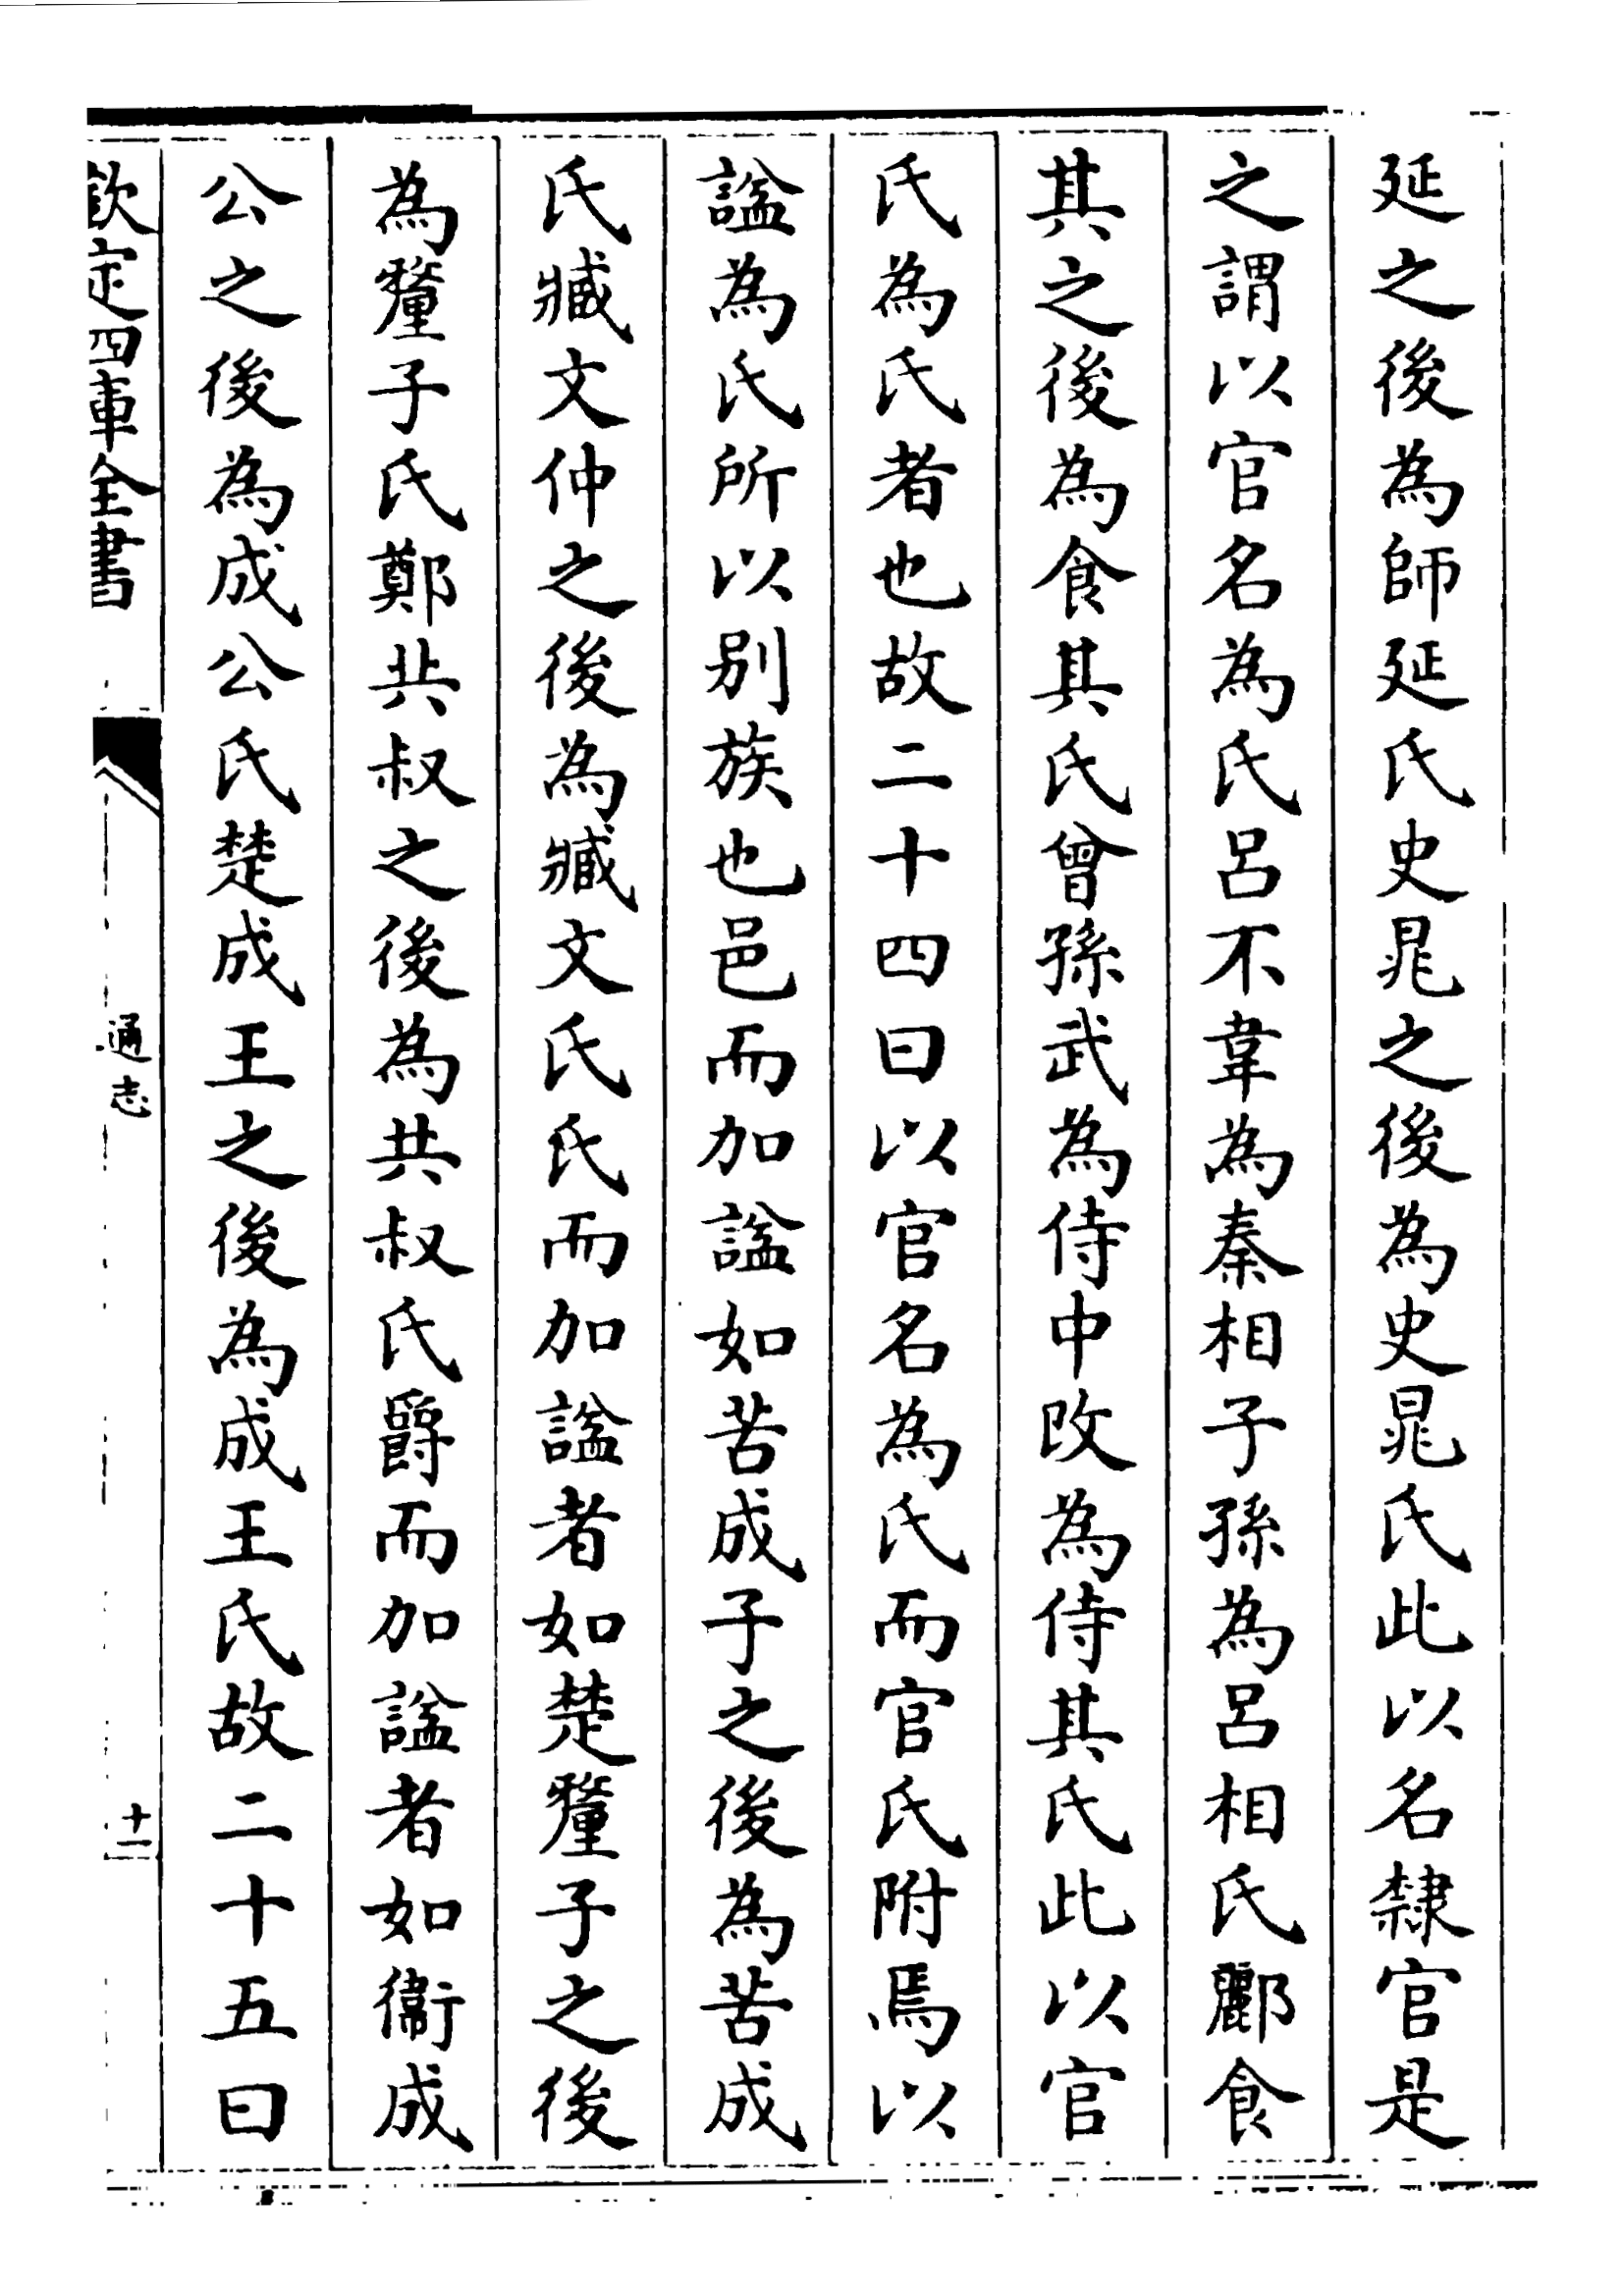 延之後為師延氏史晁之後為史晁氏此以名隸官是
之謂以官名為氏呂不韋為秦相子孫為呂相氏酈食
其之後為食其氏曾孫武為侍中改為侍其氏此以官
氏為氏者也故二十四曰以官名為氏而官氏附焉以
諡為氏所以别族也邑而加諡如苦成子之後為苦成
氏臧文仲之後為臧文氏氏而加諡者如楚釐子之後
為釐子氏鄭共叔之後為共叔氏爵而加諡者如衞成
公之後為成公氏楚成王之後為成王氏故二十五曰
欽定四庫全書
通志
十一